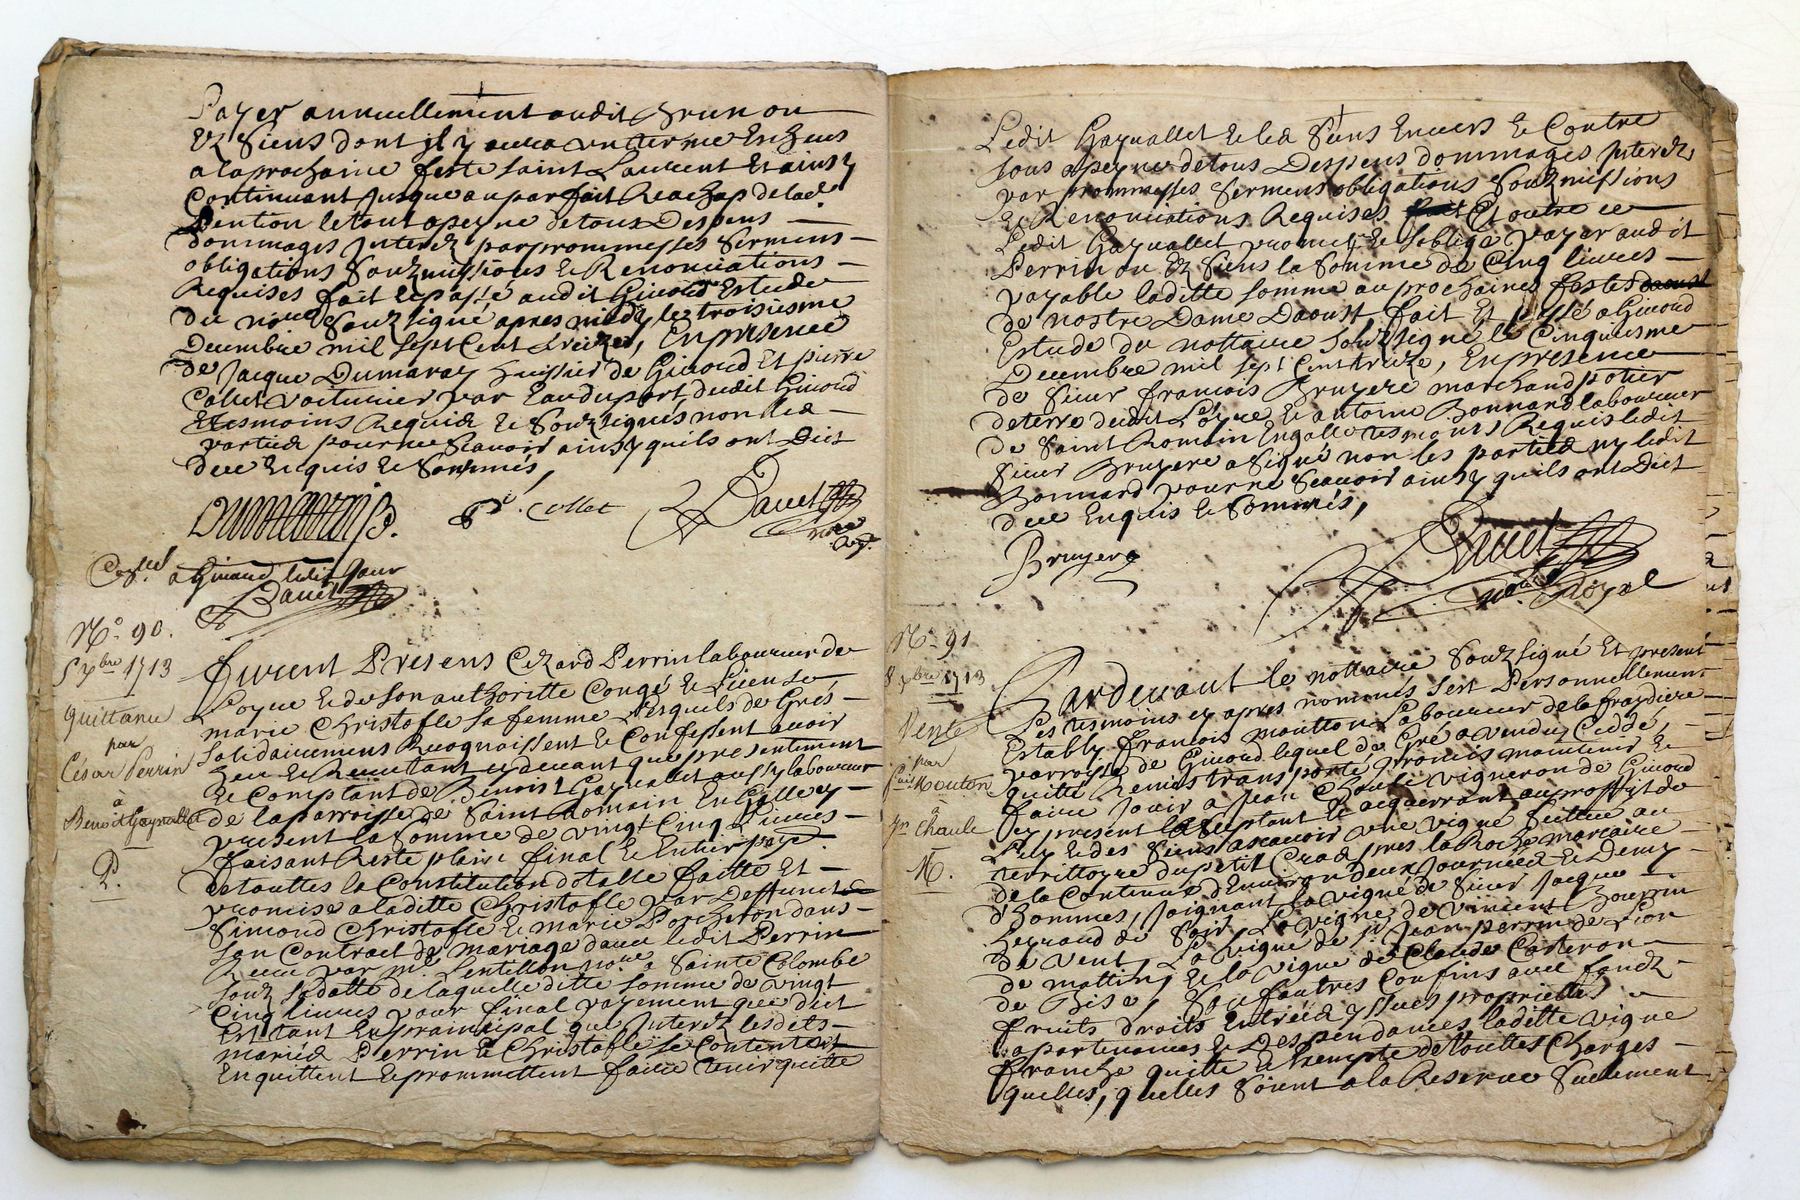 Payer annuellement audit Brun ou
Ez Siens dont il y aura un terme Escheus
a la prochaine feste Saint Laurent Et ainsy
Continuant Jusque au parfait Reachap de lad.
Pention le tout a peyne de tous Despens
dommages Interez par prommesses Sermens
obligations Souzmissions Ee Renonciations
Requises fait Ee passé audit Givord Estude
du no.re Souz signé apres midy le troisiesme
Decembre mil sept Cent treize, En presence
de Jacque Dumaray huissier de Givord Et pierre
Collet voiturier par Eau du port dudit Givord
tesmoins Requis Ee Souz signés non les
parties pour ne Scavoir ainsy quils ont Dict
de ce Enquis Ee Sommés,
P. Collet
Davet
a Givord ledit Jour
Davet
N.o 90.
5 xbre 1713
Quittance
par
César Perrin
à
Benoit Gaynallet
Furent Presens Cezard Perrin laboureur de
Loyre Ee de son authoritte Congé Ee License
marie Christofle sa femme Lesquels de Gres
Solidairement Recognoissent Ee Confessent avoir
heu Ee Receu tant cy devant que presentement
Ee Comptant de Benoist Gaynallet aussy laboureur
de la parroisse de Saint Romain En Galley
present la Somme de vingt Cinq Livres
faisant Reste plain final Ee Entier paye.
de touttes la Constitution dotalle faitte Et
promise a laditte Christofle par Deffuncts
Simond Christofle Ee marie Porcheron dans
Son Contract de mariage avec ledit Perrin
Receu par m.e Lentillon no.re a Sainte Colombe
Souz Sa datte de laquelle ditte somme de vingt
Cinq livres pour final payement que dict
Est tant En prainsipal que Interez lesdits
mariés Perrin Ee Christofle se Contentent
En quittent Ee prommettent faire tenir quitte
Ledit Gaynallet Ee les Siens Envers Ee Contre
tous a peyne de tous Despens dommages Interez
par prommesses Sermens obligations Souzmissions
Ee Renonciations Requises Et outre ce
Ledit Gaynallet promet Ee soblige payer audit
Perrin ou Ez Siens la Somme de Cinq livres
payable laditte somme au prochaines festes
de nostre Dame Daoust fait Et passé a Givord
Estude du nottaire Souz signé le Cinquiesme
Decembre mil sept Cent treize, En presence
de Sieur francois Bruyere marchand potier
de terre dudit Loyre Ee antoine Bonnard laboureur
de Saint Romain En galle tesmoins Requis ledit
Sieur Bruyere a signé non les parties ny ledit
Bonnard pour ne Scavoir ainsy quils ont Dict
de ce Enquis Ee Sommés,
Bruyere
Davet
no.re Royal
N.o 91
8 xbre 1713
Vente
par
fois Mouton
à
Jn Chaule
Pardevant le nottaire Souz signé Et present
Les tesmoins cy apres nommés S'est Personnellement
Estably francois moutton Laboureur de la fraydiere
parroisse de Givord lequel de Gré a vendu Ceddé,
quitté Remis transporté promis maintenir Ee
faire Jouir a Jean Chaule vigneron de Givord
cy present acceptant Ee acquerrant au proffit de
Luy Ee des Siens ascavoir une vigne Scittue au
territtoyre du petit Cras pres la Roche marcaire
de la Contenue D'Environ deux Journées Ee Demy
d'hommes, Joignant la vigne de Sieur Jacque
Legnand de Soir La vigne de vincent Bourrin
de vent, La vigne de Sr Jean perrin de Lion
de mattin, Ee la vigne de Claude Carteron
de Bise, Sauf autres Confins avec fondz
fruits droits Entrées yssues proprietés
apartenances Ee Despendances laditte vigne
franche quitte Ee Exempte de touttes Charges
quelles, quelles Soient a la Reserve Seulement